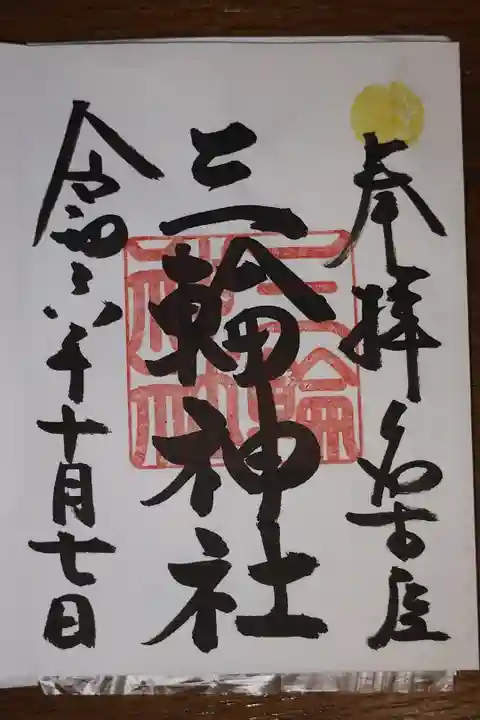 奉拝 名古屋
三輪神社
三輪神社
令和六年十月七日